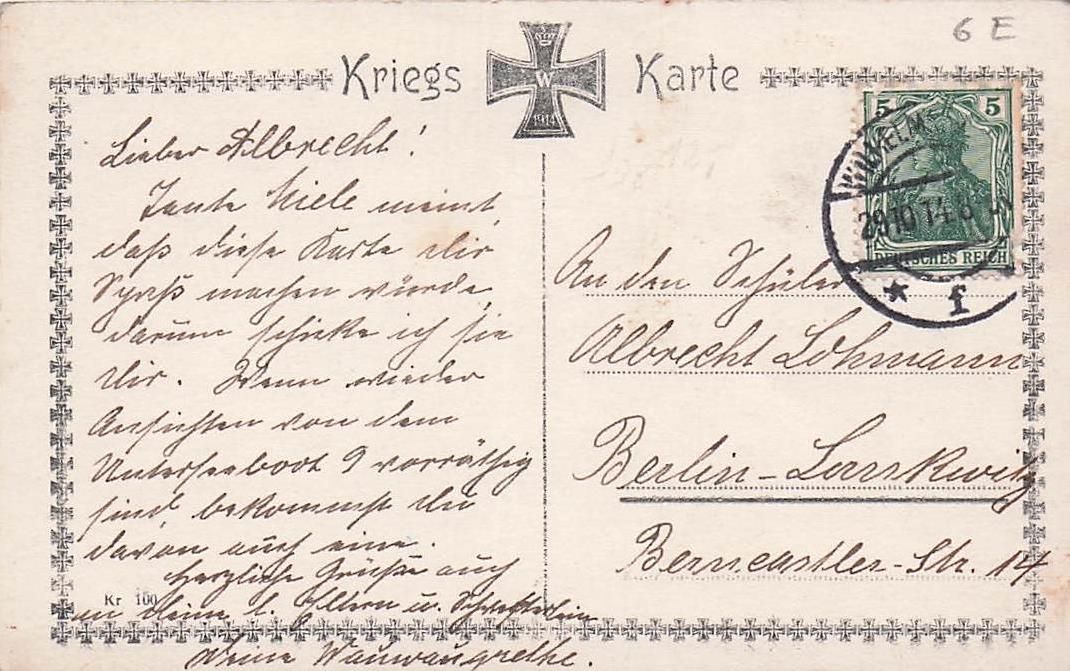 6 E
Kriegs Karte
W
1914
Lieber Albrecht!
Tante Miele meint,
daß diese Karte Dir
Spaß machen würde,
darum schicke ich sie
Dir. Wenn wieder
Ansichten von dem
Unterseeboot 9 vorräthig
sind, bekommst Du
davon auch eine.
Herzliche Grüße auch
an Deine l. Eltern u. Schwesterlein
Deine
Kr 100
5 5
DEUTSCHES REICH
WILHELM
29.10.14.
* f
An den Schüler
Albrecht Lohmann
Berlin-Lankwitz
Berncastler-Str. 14